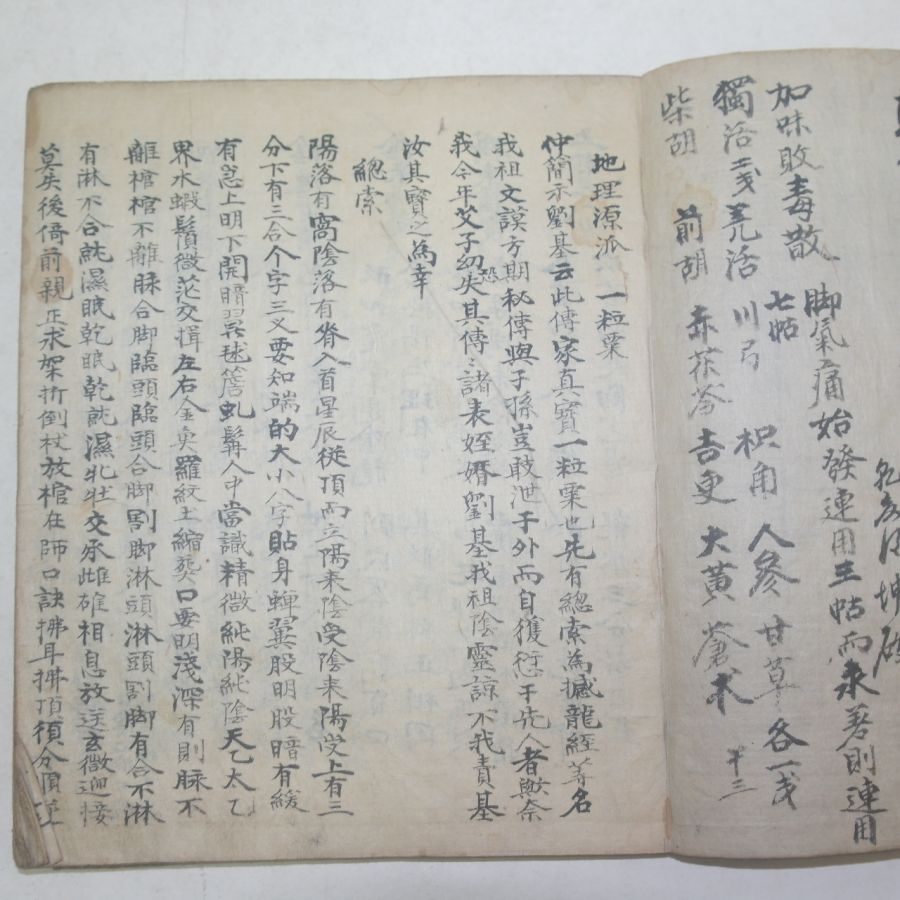 加味敗毒散 脚氣痛始發連用三帖而未差則連用
七帖
獨活二戔羌活 川弓 枳角 人參 甘草 各一戔
柴胡 前胡 赤茯苓 吉更 大黃 蒼朮 十三
地理源派 一粒粟
仲簡示劉基云此傳家真寶一粒粟也先有總索為撼龍經等名
我祖文謨方期秘傳與子孫豈敢泄于外而自獲愆于先人者歟奈
我今年艾子幼恐失其傳〻諸表姪婚劉基我祖陰靈諒不我責基
汝其寶之為幸
總索
陽落有窩陰落有脊入首星辰從頂而立陽來陰受陰來陽受上有三
分下有三合个字三义要知端的大小八字貼身蟬翼股明股暗有緩
有急上明下開暗翼毬簷虬髯人中當識精微純陽純陰天乙太乙
界水蝦鬚微茫交揖左右金魚羅紋土縮葬口要明淺深有則脉不
離棺棺不離脉合脚臨頭臨頭合脚割脚淋頭淋頭割脚有合不淋
有淋不合就濕眠乾眠乾就濕牝牡交承雌雄相息放送玄微迎接
莫失後倚前親正求架折倒杖放棺在師口訣拂耳拂頂須分順逆